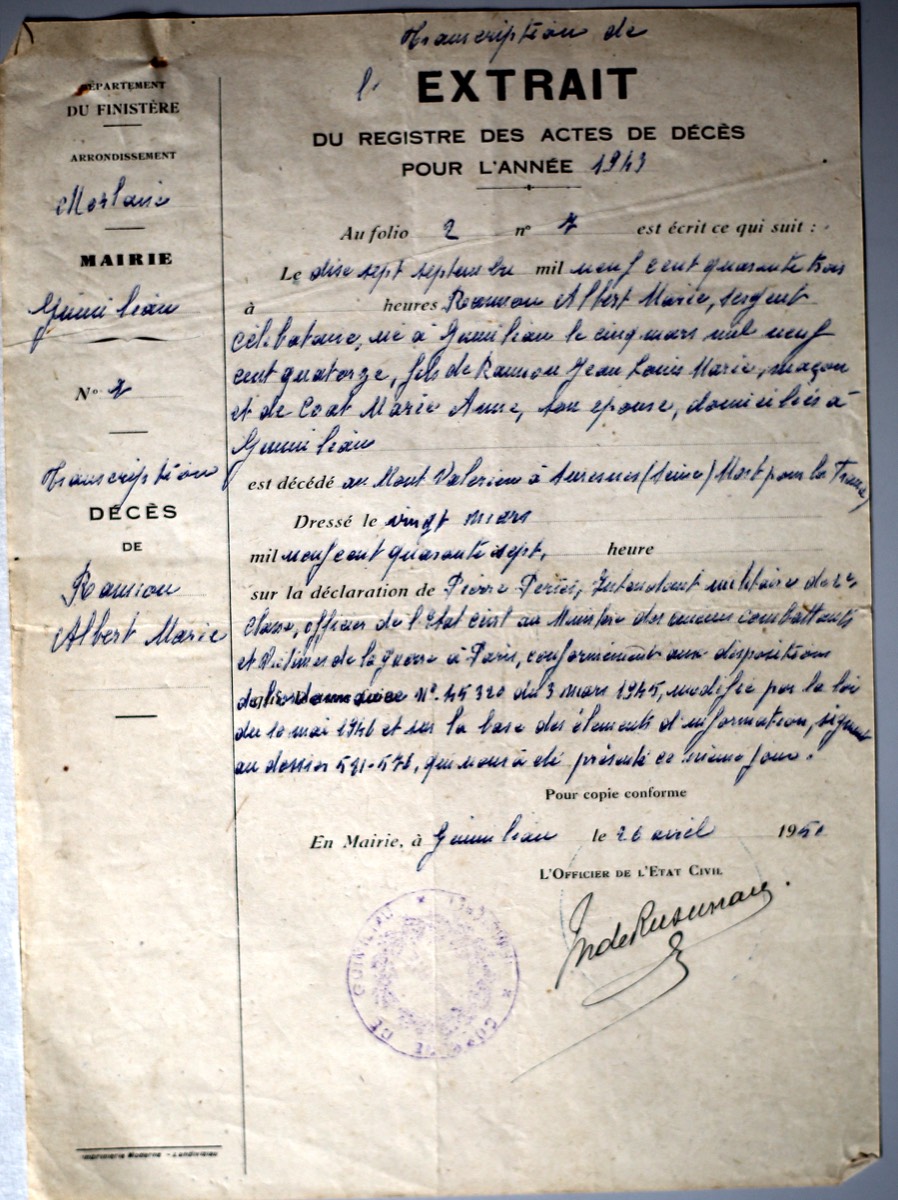 Transcription de
l'EXTRAIT
DU REGISTRE DES ACTES DE DÉCÈS
POUR L'ANNÉE 1943
DÉPARTEMENT
DU FINISTÈRE
ARRONDISSEMENT
Morlaix
MAIRIE
Guimiliau
N° 7
Transcription
DÉCÈS
DE
Ramon
Albert Marie
Au folio 2 n° 7 est écrit ce qui suit :
Le dix sept septembre mil neuf cent quarante trois
à heures Ramon Albert Marie, sergent
célibataire, né à Guimiliau le cinq mars mil neuf
cent quatorze, fils de Ramon Jean Louis Marie, maçon
et de Coat Marie Anne, son épouse, domiciliés à
Guimiliau
est décédé au Mont Valérien à Suresnes (Seine) Mort pour la France
Dressé le vingt mars
mil neuf cent quarante sept, heure
sur la déclaration de Pierre Intendant militaire de 2e
classe, officier de l'Etat civil au Ministère des anciens combattants
et Victimes de la guerre à Paris, conformément aux dispositions
n° 45320 du 3 mars 1945, modifié par la loi
du 10 mai 1946 et sur la base des éléments d'information, figurant
au dossier 521-576, qui nous a été présenté ce même jour.
Pour copie conforme
En Mairie, à Guimiliau le 26 avril 1950
L'OFFICIER DE L'ETAT CIVIL
DE GUIMILIAU
Imprimerie Moderne - Landivisiau